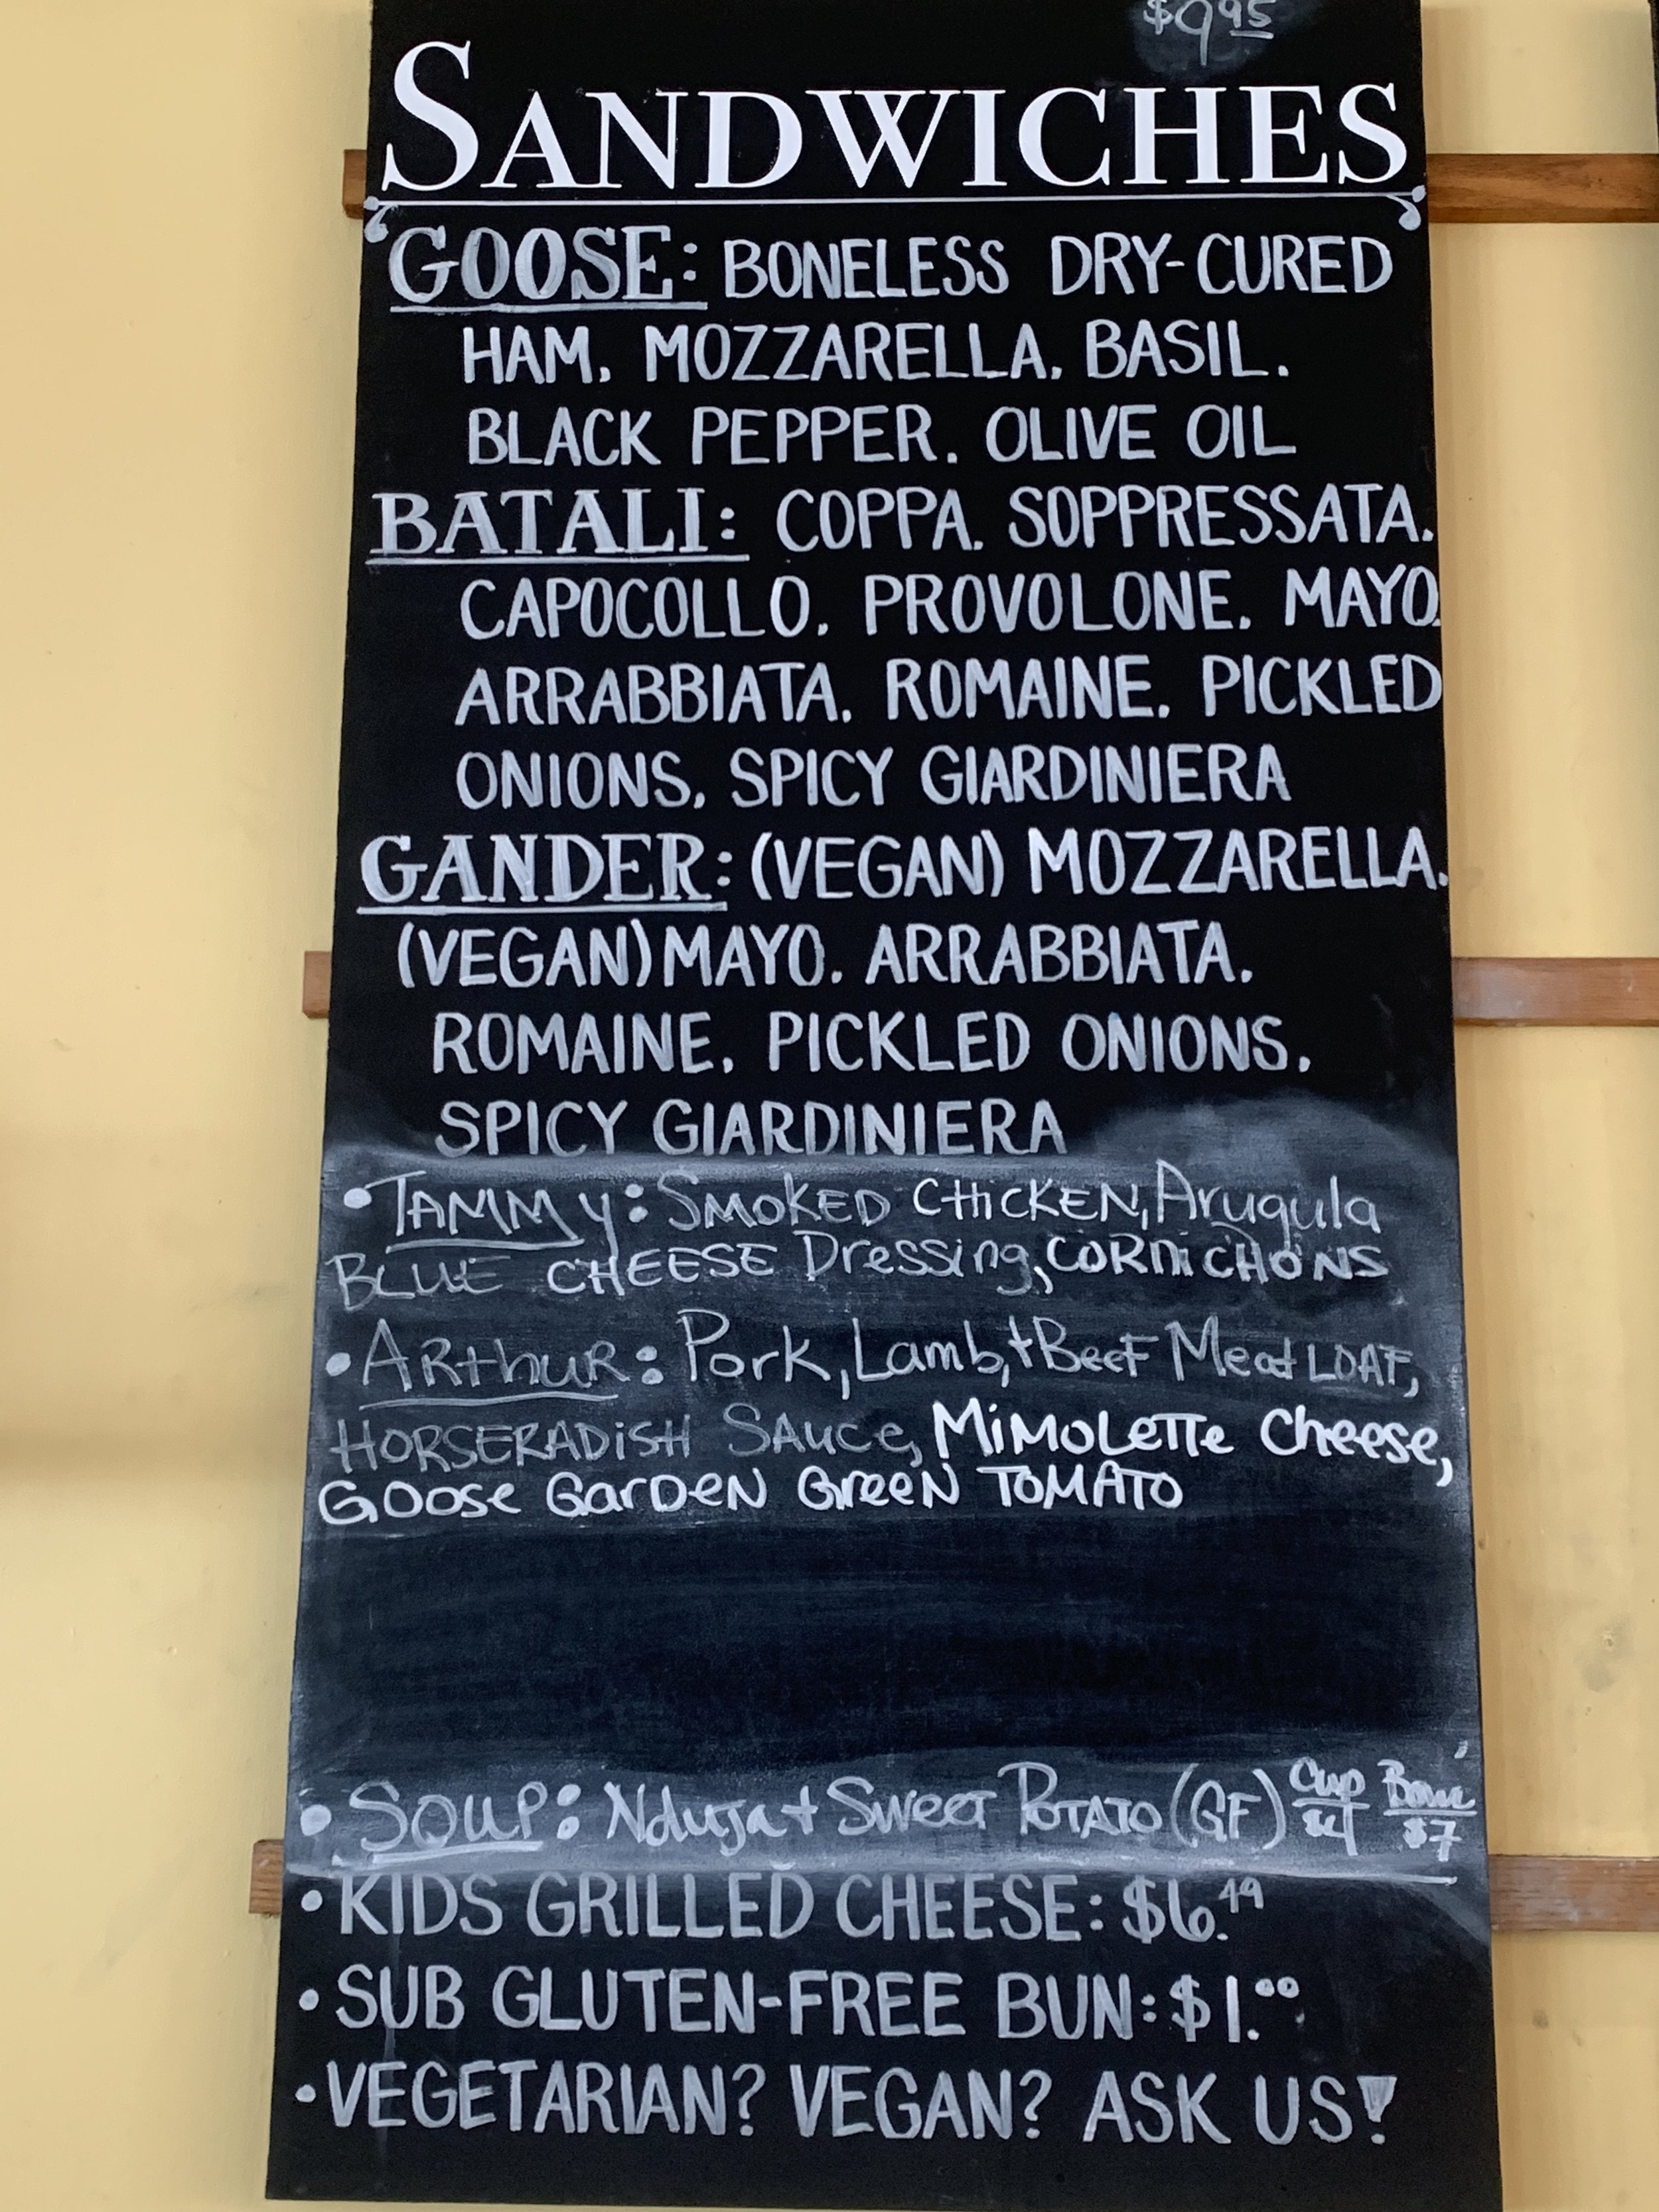 $9.95
SANDWICHES
GOOSE: BONELESS DRY-CURED
HAM, MOZZARELLA, BASIL,
BLACK PEPPER, OLIVE OIL
BATALI: COPPA, SOPPRESSATA,
CAPOCOLLO, PROVOLONE, MAYO,
ARRABBIATA, ROMAINE, PICKLED
ONIONS, SPICY GIARDINIERA
GANDER: (VEGAN) MOZZARELLA,
(VEGAN) MAYO, ARRABBIATA,
ROMAINE, PICKLED ONIONS,
SPICY GIARDINIERA
• TAMMY: SMOKED CHICKEN, Arugula
BLUE CHEESE Dressing, CORNiCHONS
• ARthuR: Pork, Lamb, + BeeF Meat LOAF,
HORSERADiSH SAuce, MiMOLeTTe Cheese,
GOose GarDeN GreeN TOMATO
• SOUP: Nduja + Sweet POTATO (GF) Cup $4 Bowl $7
• KIDS GRILLED CHEESE: $6.49
• SUB GLUTEN-FREE BUN: $1.00
• VEGETARIAN? VEGAN? ASK US!